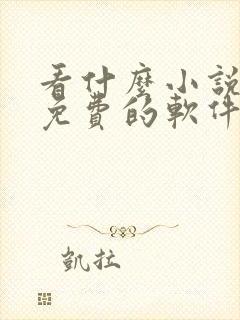 看什麼小說
免費的軟件
凱拉